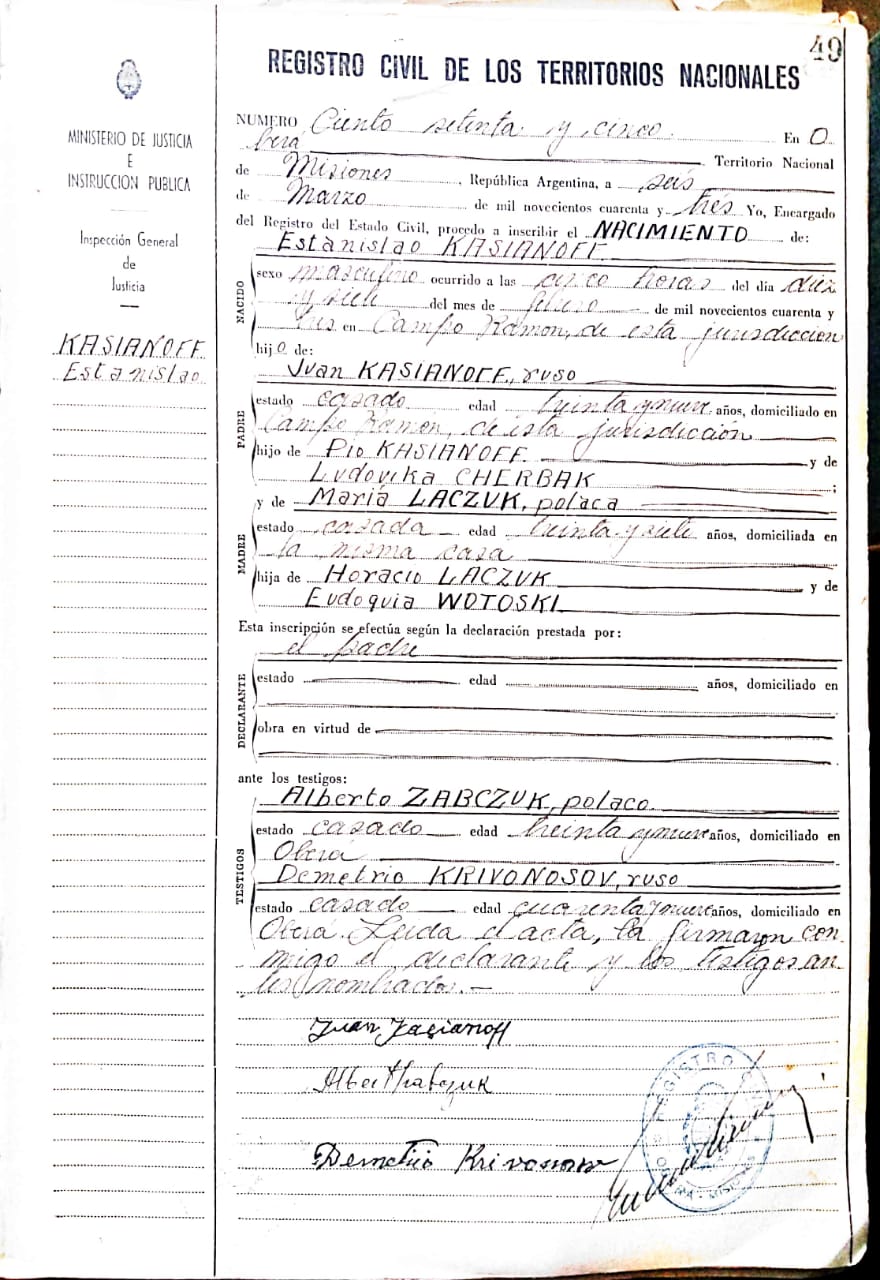 49
REGISTRO CIVIL DE LOS TERRITORIOS NACIONALES
MINISTERIO DE JUSTICIA
E
INSTRUCCION PUBLICA
Inspección General
de
Justicia
KASIANOFF
Estanislao
NUMERO Ciento setenta y cinco. En O
berá Territorio Nacional
de Misiones, República Argentina, a seis
de Marzo de mil novecientos cuarenta y trés Yo, Encargado
del Registro del Estado Civil, procedo a inscribir el NACIMIENTO de:
Estanislao KASIANOFF
NACIDO
sexo masculino ocurrido a las cinco horas del día diez
y siete del mes de febrero de mil novecientos cuarenta y
tres en Campo Ramon, de esta jurisdiccion
hijo de:
Juan KASIANOFF, ruso
PADRE
estado casado edad treinta y nueve años, domiciliado en
Campo Ramón, de ésta jurisdicción
hijo de Pio KASIANOFF y de
Ludovika CHERBAK ;
y de María LACZUK, polaca
MADRE
estado casada edad treinta y siete años, domiciliada en
la misma casa
hija de Horacio LACZUK y de
Eudoquia WOTOSKI
Esta inscripción se efectúa según la declaración prestada por:
el padre
DECLARANTE
estado edad años, domiciliado en
obra en virtud de
ante los testigos:
Alberto ZABCZUK, polaco
TESTIGOS
estado casado edad treinta y nueve años, domiciliado en
Oberá
Demetrio KRIVONOSOV, ruso
estado casado edad cuarenta y nueve años, domiciliado en
Oberá. Leida el acta, la firmaron con
migo el declarante y los testigos an
tes nombrados.-
Juan Kasianoff
Demetrio
REGISTRO
MISIONES